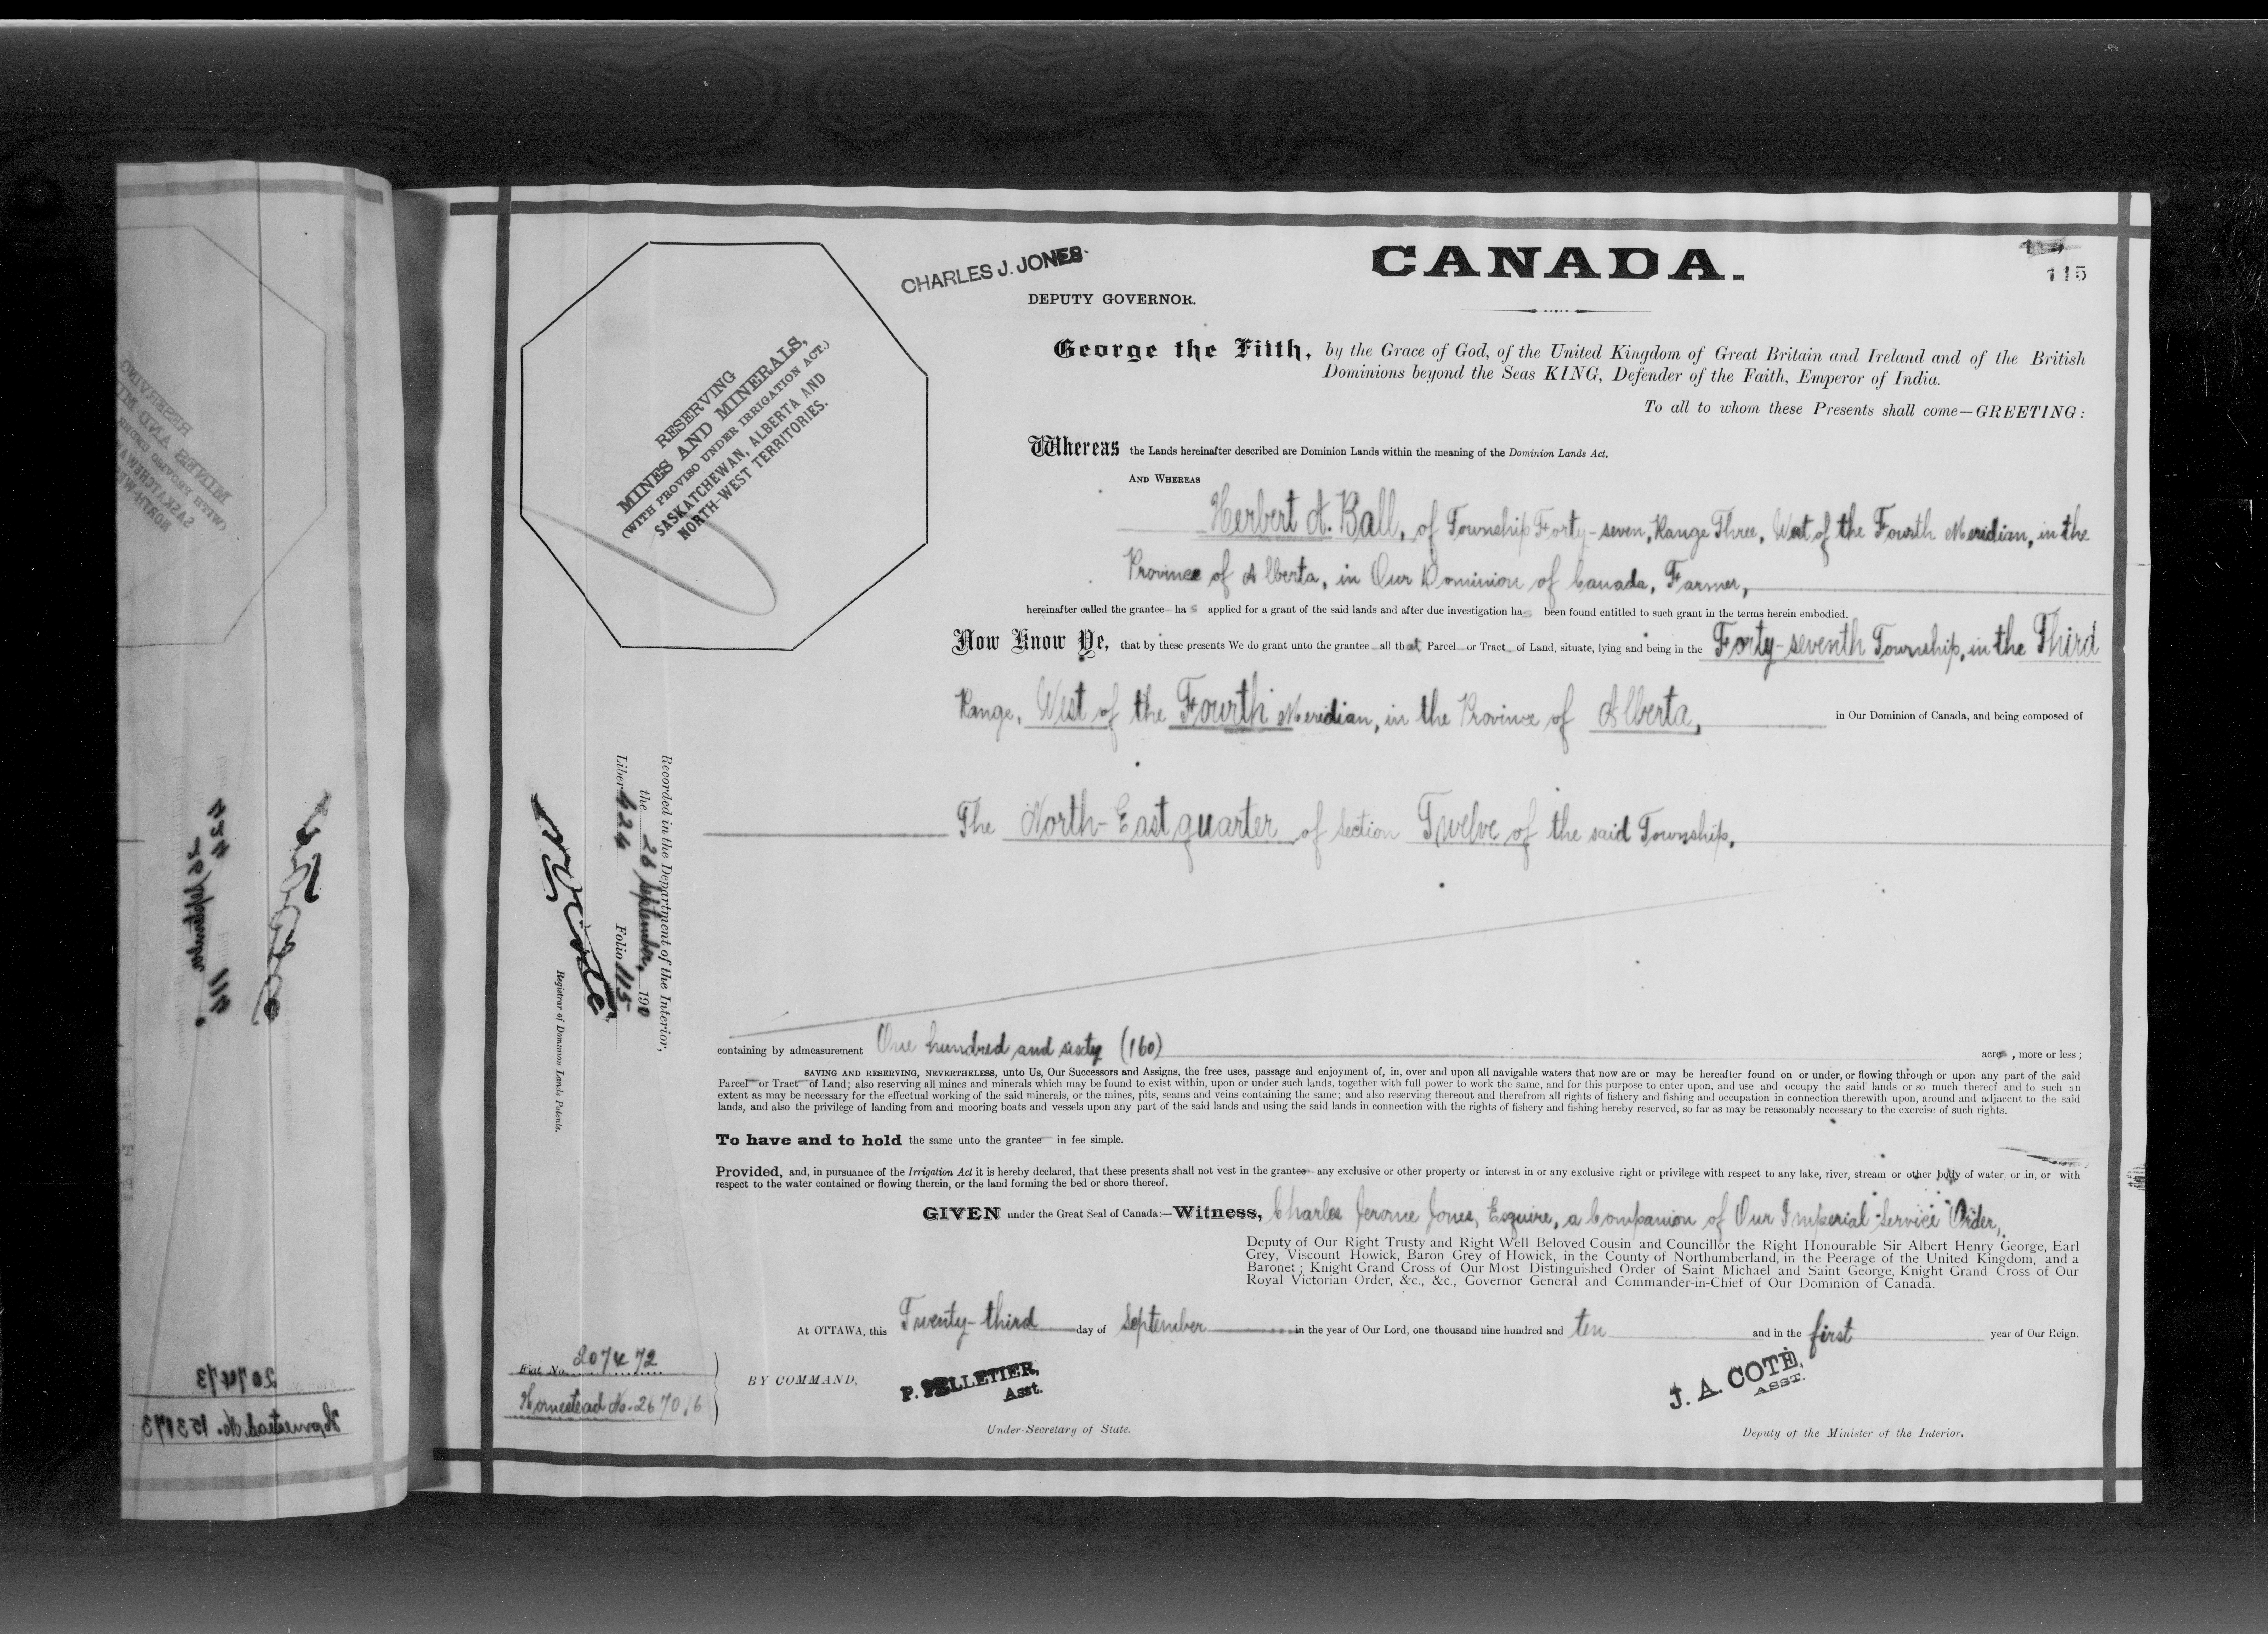 CANADA.
115
CHARLES J. JONES.
DEPUTY GOVERNOR.
RESERVING
MINES AND MINERALS,
(WITH PROVISO UNDER IRRIGATION ACT.)
SASKATCHEWAN, ALBERTA AND
NORTH-WEST TERRITORIES.
George the Fifth, by the Grace of God, of the United Kingdom of Great Britain and Ireland and of the British
Dominions beyond the Seas KING, Defender of the Faith, Emperor of India.
To all to whom these Presents shall come—GREETING:
Whereas the Lands hereinafter described are Dominion Lands within the meaning of the Dominion Lands Act.
AND WHEREAS
Herbert A. Ball, of Township Forty-seven, Range Three, West of the Fourth Meridian, in the
Province of Alberta, in Our Dominion of Canada, Farmer,
hereinafter called the grantee has applied for a grant of the said lands and after due investigation has been found entitled to such grant in the terms herein embodied.
Now Know Ye, that by these presents We do grant unto the grantee all that Parcel or Tract of Land, situate, lying and being in the Forty-seventh Township, in the Third
Range, West of the Fourth Meridian, in the Province of Alberta, in Our Dominion of Canada, and being composed of
The North-East quarter of section Twelve of the said Township,
containing by admeasurement One hundred and sixty (160) acres, more or less;
SAVING AND RESERVING, NEVERTHELESS, unto Us, Our Successors and Assigns, the free uses, passage and enjoyment of, in, over and upon all navigable waters that now are or may be hereafter found on or under, or flowing through or upon any part of the said
Parcel or Tract of Land; also reserving all mines and minerals which may be found to exist within, upon or under such lands, together with full power to work the same, and for this purpose to enter upon, and use and occupy the said lands or so much thereof and to such an
extent as may be necessary for the effectual working of the said minerals, or the mines, pits, seams and veins containing the same; and also reserving thereout and therefrom all rights of fishery and fishing and occupation in connection therewith upon, around and adjacent to the said
lands, and also the privilege of landing from and mooring boats and vessels upon any part of the said lands and using the said lands in connection with the rights of fishery and fishing hereby reserved, so far as may be reasonably necessary to the exercise of such rights.
To have and to hold the same unto the grantee in fee simple.
Provided, and, in pursuance of the Irrigation Act it is hereby declared, that these presents shall not vest in the grantee any exclusive or other property or interest in or any exclusive right or privilege with respect to any lake, river, stream or other body of water, or in, or with
respect to the water contained or flowing therein, or the land forming the bed or shore thereof.
GIVEN under the Great Seal of Canada:—Witness, Charles Jerome Jones, Esquire, a Companion of Our Imperial Service Order,
Deputy of Our Right Trusty and Right Well Beloved Cousin and Councillor the Right Honourable Sir Albert Henry George, Earl
Grey, Viscount Howick, Baron Grey of Howick, in the County of Northumberland, in the Peerage of the United Kingdom, and a
Baronet; Knight Grand Cross of Our Most Distinguished Order of Saint Michael and Saint George, Knight Grand Cross of Our
Royal Victorian Order, &c., &c., Governor General and Commander-in-Chief of Our Dominion of Canada.
At OTTAWA, this Twenty-third day of September in the year of Our Lord, one thousand nine hundred and ten and in the first year of Our Reign.
BY COMMAND,
P. PELLETIER,
Asst.
Under-Secretary of State.
J. A. COTÉ,
ASST.
Deputy of the Minister of the Interior.
Recorded in the Department of the Interior,
the 26 September, 1910
Liber 424 Folio 115
Registrar of Dominion Lands Patents.
Fiat No. 207472
Homestead No. 267016
424 114
26 September
207473
Homestead No. 153173